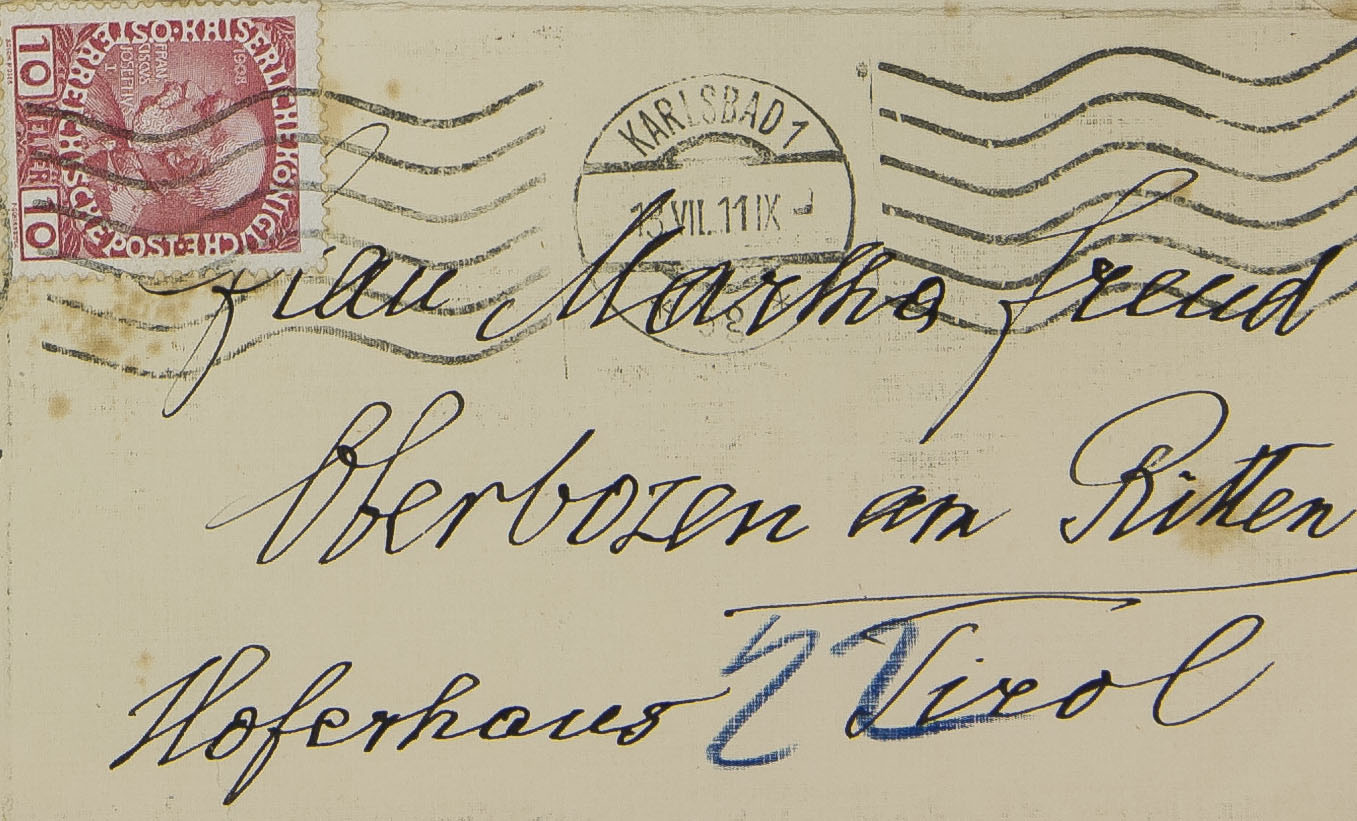 KAISERLICHE KÖNIGLICHE ÖSTERREICHISCHE POST
1908
FRAN
CISCVS
JOSEPH
I
10 HELLER 10
KARLSBAD 1
13.VII.11 IX
Frau Martha Freud
Oberbozen am Ritten
Hoferhaus Tirol